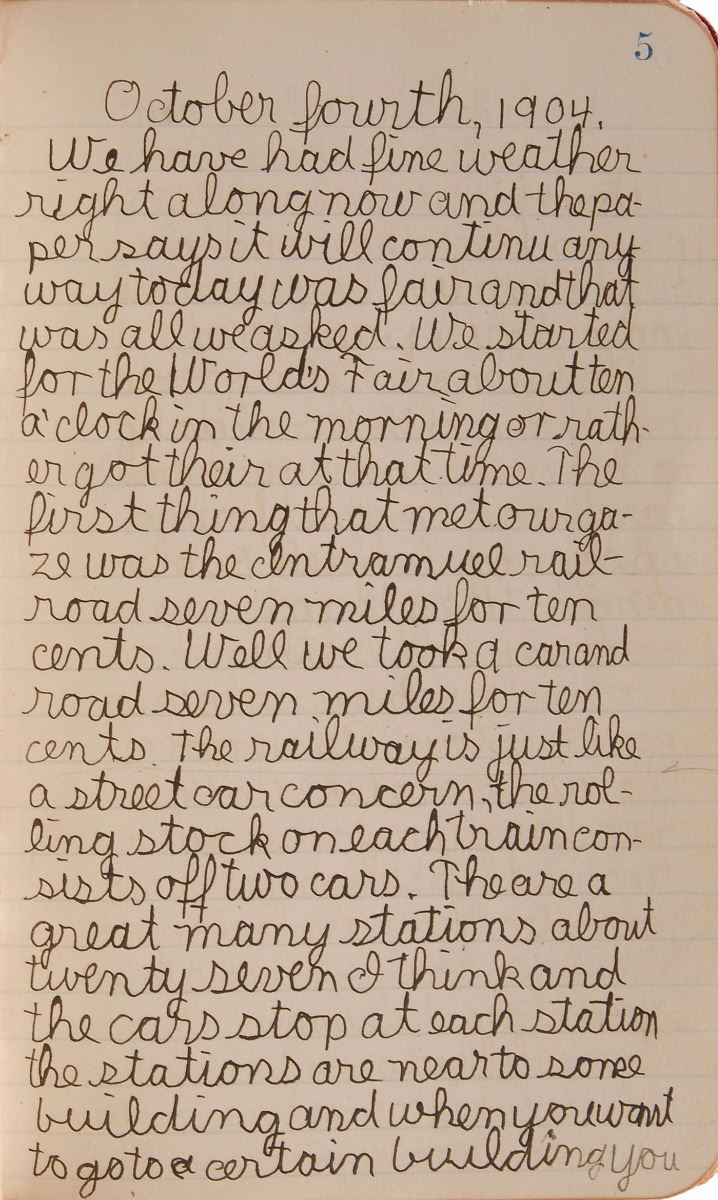 5
October fourth, 1904.
We have had fine weather
right along now and the pa-
per says it will continu any
way today was fair and that
was all we asked. We started
for the World's Fair about ten
a'clock in the morning or rath-
er got their at that time. The
first thing that met our ga-
ze was the Intramuel rail-
road seven miles for ten
cents. Well we took a car and
road seven miles for ten
cents. The railway is just like
a street car concern, the rol-
ling stock on each train con-
sists off two cars. The are a
great many stations about
twenty seven I think and
the cars stop at each station
the stations are near to some
building and when you want
to go to a certain building you